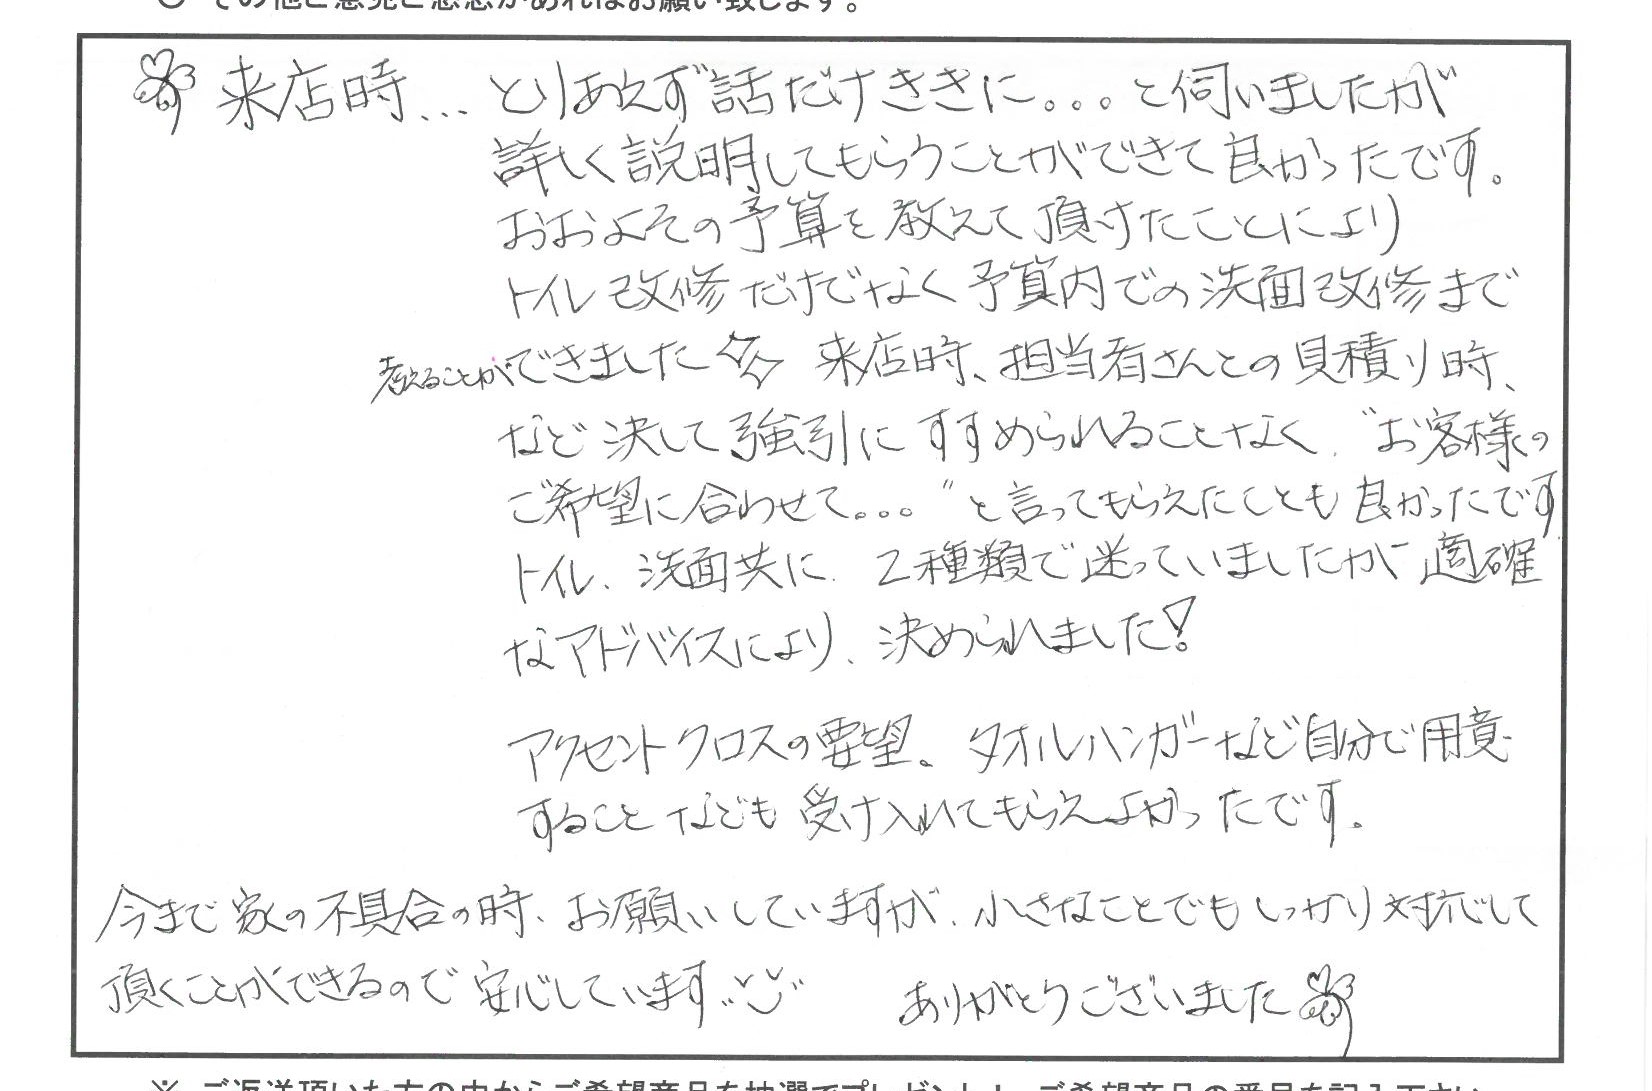 その他ご意見ご感想があればお願い致します。
来店時… とりあえず話だけききに。。。と伺いましたが
詳しく説明してもらうことができて良かったです。
おおよその予算を教えて頂けたことにより
トイレ改修だけでなく予算内での洗面改修まで
考えることができました 来店時、担当者さんとの見積り時、
など決して強引にすすめられることなく、“お客様の
ご希望に合わせて。。。”と言ってもらえたことも良かったです
トイレ、洗面共に、2種類で迷っていましたが適確
なアドバイスにより、決められました!
アクセントクロスの要望。タオルハンガーなど自分で用意
することなども受け入れてもらえよかったです。
今まで家の不具合の時、お願いしていますが、小さなことでもしっかり対応して
頂くことができるので安心しています。 ありがとうございました
※ ご返送頂いた方の中からご希望商品を抽選でプレゼント! ご希望商品の番号を記入下さい